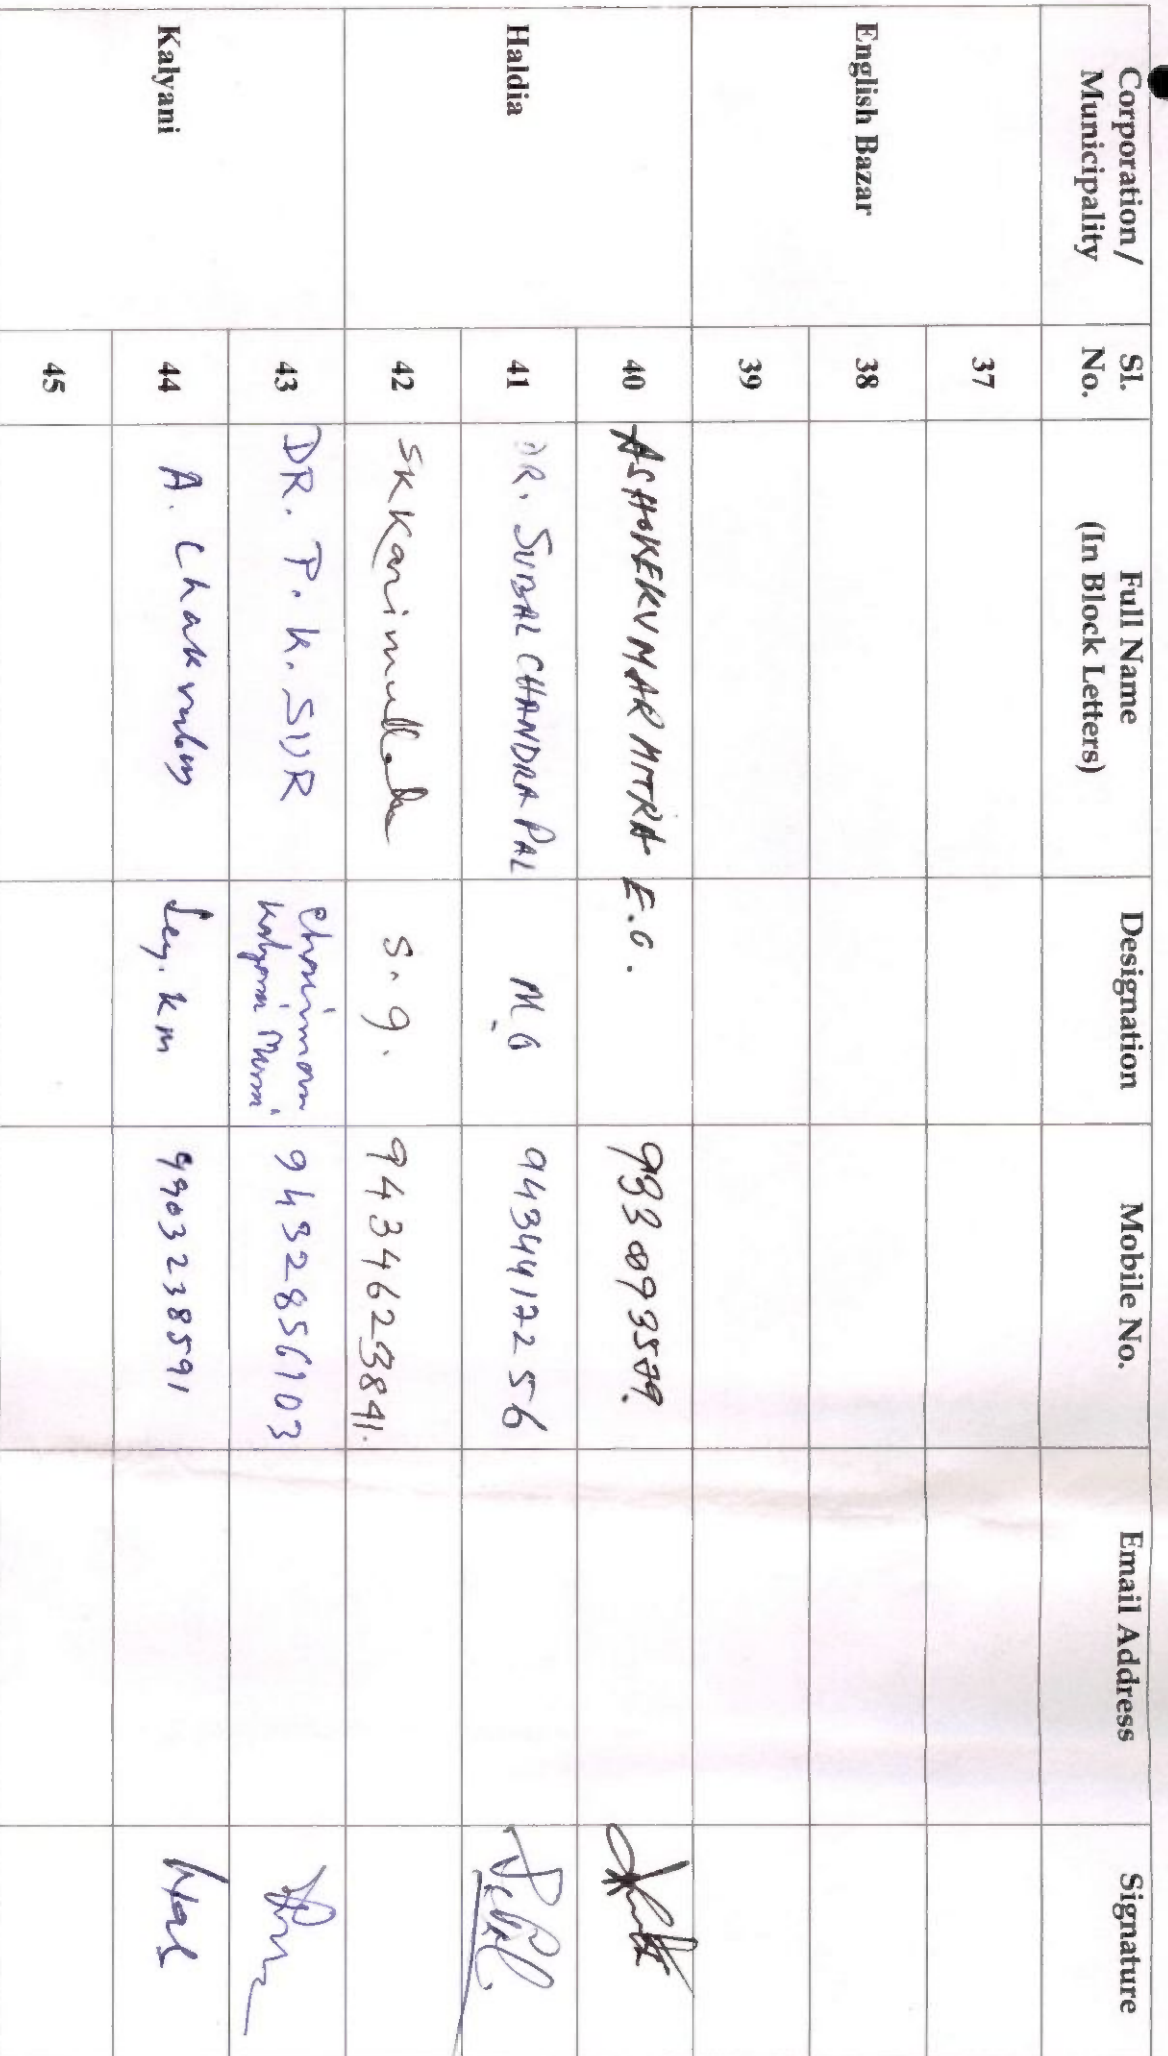 Corporation/ Municipality Sl. No. Full Name (In Block Letters) Designation Mobile No. Email Address Signature
English Bazar
37
38
39
Haldia
40 ASHOKEKUMAR MITRA E.O.
41 DR. SUBAL CHANDRA PAL M.O 9434417256
42 SK Karimulla S.g. 9434623841.
Kalyani
43 DR. P. K. SUR Chairman Kalyani 9432856103
44 A. Chakraborty km 9903238591
45